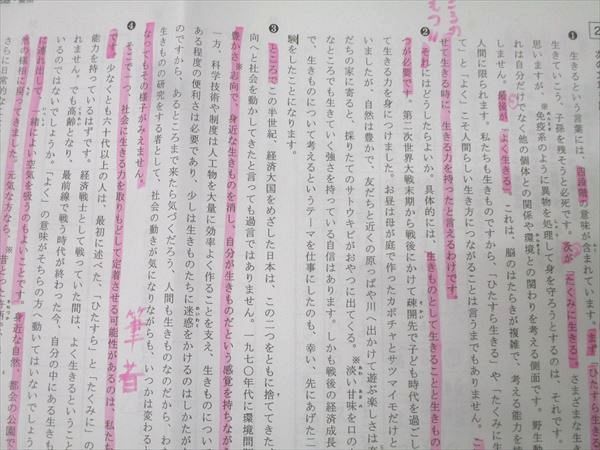 生きるという言葉には、四段階の意味が含まれています。まず「ひたすら生きる
生きていこう、子孫を残そうと必死です。次が「たくみに生きる」。さまざまな生き
思いますが、※免疫系のように異物を処理して身を守ろうとするのは、それです。
れは自分だけでなく他の個体との関係や環境との関わりを考える側面です。野生動
しません。最後が「よく生きる」。これは、脳のはたらきが複雑で、考える能力を持
人間に限られます。私たちも生きものですから、「ひたすら生きる」や「たくみに生
て」と「よく」こそ人間らしい生き方につながることは言うまでもありません。こ
て生きる時に、生きる力を持ったと言えるわけです。
❷ それにはどうしたらよいか。具体的には、生きものとして生きることと生きもの
つが必要です。第二次世界大戦末期から戦後にかけて疎開先で子ども時代を過ごし
て生きる力を身につけました。お昼は母が庭で作ったカボチャとサツマイモだけと
いましたが、自然は豊かで、友だちと近くの原っぱや川へ出かけて遊ぶ楽しさは充
だちの家に寄ると、採りたてのサトウキビがおやつに出てくる。※淡い甘味を口の
なところでも生きていく強さを持っている自信はあります。しかも戦後の経済成長
で、生きものについて考えるというテーマを仕事にしたのも、幸い、先にあげた二
験をしたことになります。
❸ ところでこの半世紀、経済大国をめざした日本は、この二つをともに捨ててきた
向へと社会を動かしてきたと言っても過言ではありません。一九七〇年代に環境問題
豊かさ※志向で、身近な生きものを消し、自分が生きものだという感覚を持ちなが
一方、科学技術や制度は人工物を大量に効率よく作ることを支え、生きものについ
ある程度の便利さは必要であり、少しは生きものたちに迷惑をかけるのはしかたが
のですから、あるところまで来たら気づくだろう、人間も生きものなのだから、わ
生きものの研究をする者として、社会の動きが気になりながらも、いつかは変わると
なってもその様子がみえません。
筆者
❹ そこで一つ、社会に生きる力を取りもどして定着させる可能性があるのは、私た
です。少なくとも六十代以上の人は、最初に述べた、「ひたすら」と「たくみに」の
能力を持っているはずです。経済戦士として戦っていた間は、よく生きるということ
れません。でも高齢となり、最前線で戦う時代が終わった今、自分の中にある生きも
いるのではないでしょうか。「よく」の意味がそちらの方へ動いてはいないでしょう
に連れ出して、一緒によい空気を吸うのもよいことです。身近な自然、都会の公園で